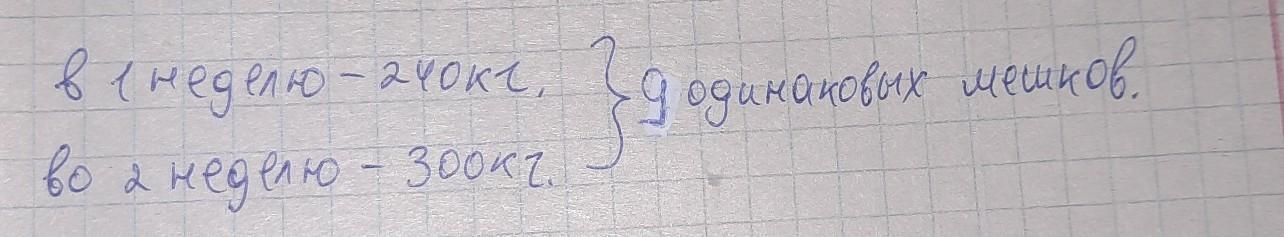 в 1 неделю - 240кг. } 9 одинаковых мешков.
во 2 неделю - 300кг.